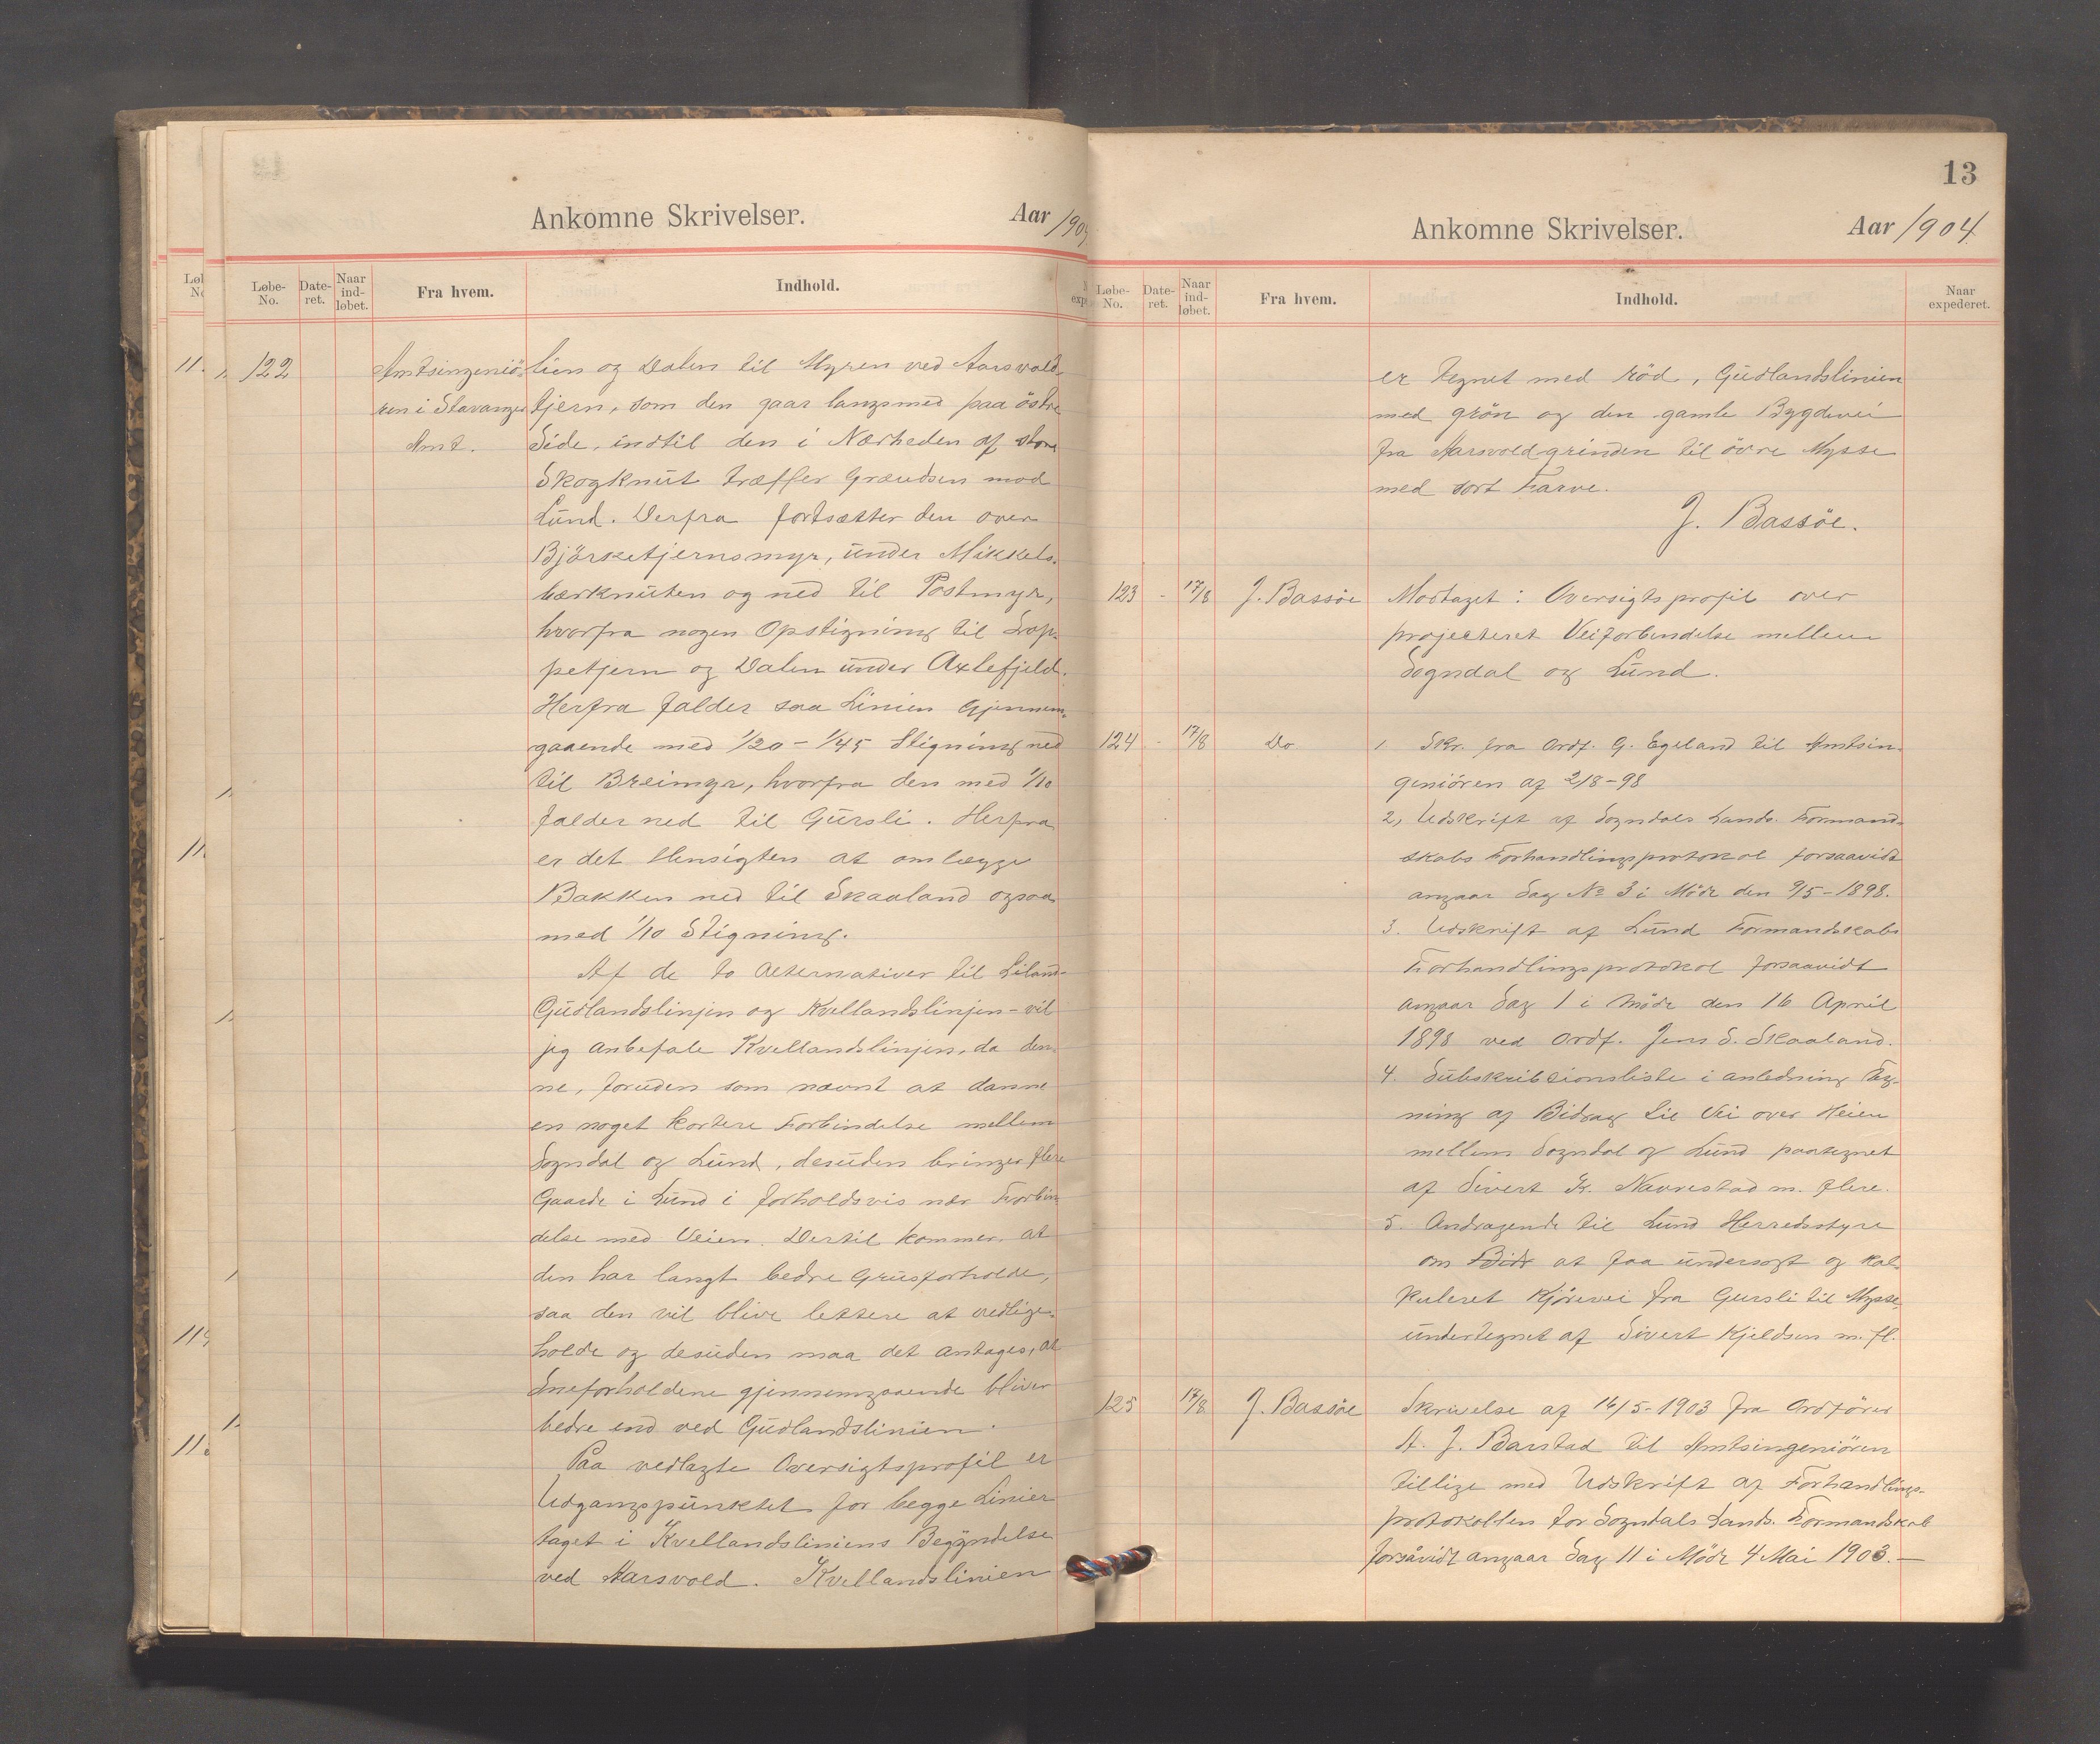 Ankomne Skrivelser.
Aar 190
Løbe-No.
Date-ret.
Naar ind-løbet.
Fra hvem.
Indhold.
122
Amtsingeniö-
ren i Stavanger
Amt.
lien og Dalen til Myren ved Aarsvold-
tjern, som den gaar langsmed paa östre
Side, indtil den i Nærheden af store
Skogknut træffer Grændsen mod
Lund. Derfra fortsætter den over
Björketjernsmyr, under Mikkels-
bærknuten og ned til Postmyr,
hvorfra nogen Opstigning til Lop-
petjern og Dalen under Axlefjeld.
Herfra falder saa Linien Gjennem-
gaaende med 1/20 - 1/45 Stigning ned
til Breimyr, hvorfra den med 1/10
falder ned til Gursli. Herfra
er det Hensigten at omlægge
Bakken ned til Skaaland ogsaa
med 1/10 Stigning.
Af de to Alternativer til Liland-
Gudlandslinjen og Kvellandslinjen - vil
jeg anbefale Kvellandslinjen, da den-
ne, foruden som nævnt at danne
en noget kortere Forbindelse mellem
Sogndal og Lund, desuden bringer flere
Gaarde i Lund i forholdsvis nær Forbin-
delse med Veien. Dertil kommer, at
den har langt bedre Grusforholde,
saa den vil blive lettere at vedlige-
holde og desuden maa det antages, at
Sneforholdene gjennemgaaende bliver
bedre end ved Gudlandslinien.
Paa vedlagte Oversigtsprofil er
Udgangspunktet for begge Linier
taget i Kvellandsliniens Begyndelse
ved Aarsvold. Kvellandslinien
13
Ankomne Skrivelser.
Aar 1904
Løbe-No.
Date-ret.
Naar ind-løbet.
Fra hvem.
Indhold.
Naar expederet.
er tegnet med röd, Gudlandslinien
med grön og den gamle Bygdevei
fra Aarsvoldgrinden til övre Mysse
med sort Farve.
J. Bassöe.
123 - 17/8 J. Bassöe Modtaget: Oversigtsprofil over
projecteret Veiforbindelse mellem
Sogndal og Lund.
124 - 17/8 Do 1. Skr. fra Ordf. G. Egeland til Amtsin-
geniören af 2/8-98
2, Udskrift af Sogndals Lands. Formand-
skabs Forhandlingsprotokol forsaavidt
angaar Sag No 3 i Möde den 9/5-1898.
3. Udskrift af Lund Formandskabs
Forhandlingsprotokol forsaavidt
angaar Sag 1 i Möde den 16 April
1898 ved Ordf. Jens S. Skaaland.
4. Subskribtionsliste i anledning Teg-
ning af Bidrag til Vei over Heien
mellem Sogndal og Lund paategnet
af Sivert Kr. Navrestad m. flere.
5. Andragende til Lund Herredsstyre
om Bidr at faa undersogt og kal-
kuleret Kjörevei fra Gursli til Mysse,
undertegnet af Sivert Kjeldsen m. fl.
125 17/8 J. Bassöe Skrivelse af 16/5-1903 fra Ordförer
A. J. Barstad til Amtsingeniören
tillige med Udskrift af Forhandlings-
protokollen for Sogndals Lands. Formandskab
forsåvidt angaar Sag 11 i Möde 4 Mai 1903. —